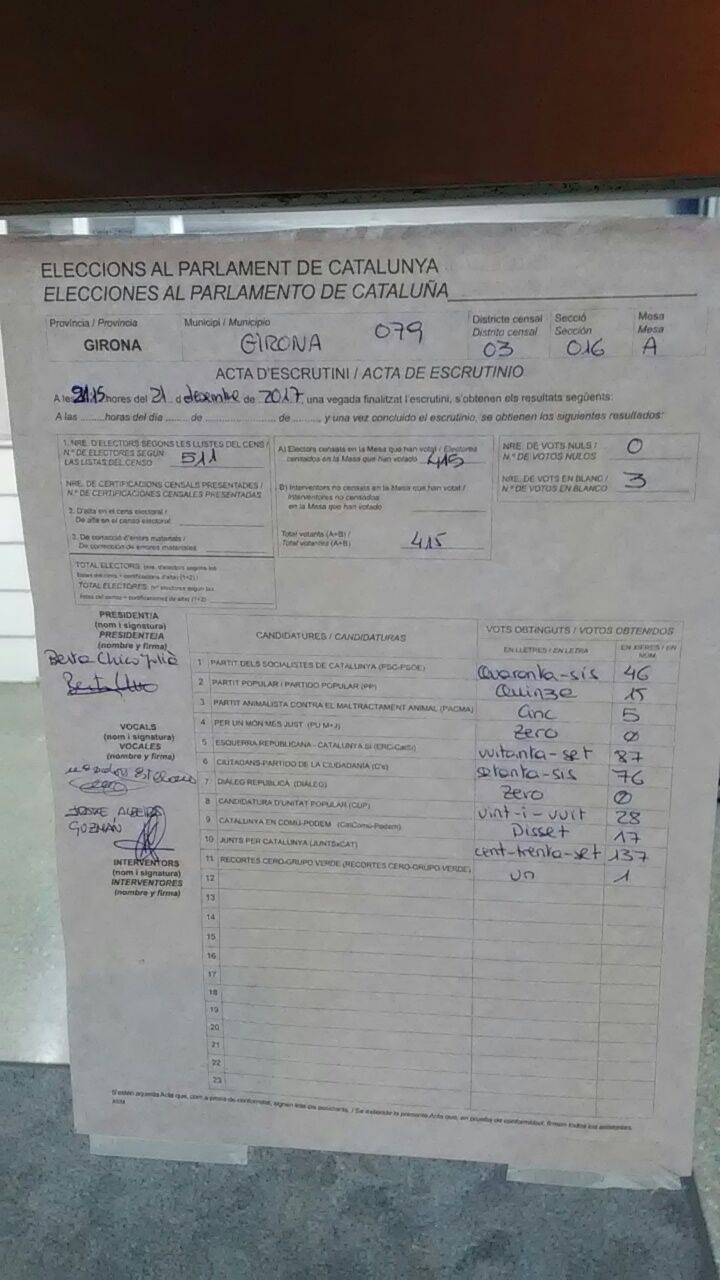 ELECCIONS AL PARLAMENT DE CATALUNYA
ELECCIONES AL PARLAMENTO DE CATALUÑA
Província / Provincia
GIRONA
Municipi / Municipio
GIRONA 079
Districte censal
Distrito censal
03
Secció
Sección
016
Mesa
Mesa
A
ACTA D'ESCRUTINI / ACTA DE ESCRUTINIO
A les 21:15 hores del 21 d desembre de 2017 una vegada finalitzat l'escrutini, s'obtenen els resultats següents:
A las ........ horas del día ........ de ........ de ........, y una vez concluido el escrutinio, se obtienen los siguientes resultados:
1. NRE. D'ELECTORS SEGONS LES LLISTES DEL CENS /
N.º DE ELECTORES SEGÚN
LAS LISTAS DEL CENSO 511
NRE. DE CERTIFICACIONS CENSALS PRESENTADES /
N.º DE CERTIFICACIONES CENSALES PRESENTADAS
2. D'alta en el cens electoral /
De alta en el censo electoral
3. De correcció d'errors materials /
De corrección de errores materiales
TOTAL ELECTORS: (nre. d'electors segons les
llistes del cens + certificacions d'alta) (1+2) /
TOTAL ELECTORES: (n.º electores según las
listas del censo + certificaciones de alta) (1+2)
A) Electors censats en la Mesa que han votat / Electores
censados en la Mesa que han votado 415
B) Interventors no censats en la Mesa que han votat /
Interventores no censados
en la Mesa que han votado
Total votants (A+B) /
Total votantes (A+B) 415
NRE. DE VOTS NULS /
N.º DE VOTOS NULOS 0
NRE. DE VOTS EN BLANC /
N.º DE VOTOS EN BLANCO 3
PRESIDENT/A
(nom i signatura)
PRESIDENTE/A
(nombre y firma)
Berta Chico Julià
VOCALS
(nom i signatura)
VOCALES
(nombre y firma)
GUZMÁN
INTERVENTORS
(nom i signatura)
INTERVENTORES
(nombre y firma)
CANDIDATURES / CANDIDATURAS
VOTS OBTINGUTS / VOTOS OBTENIDOS
EN LLETRES / EN LETRA
EN XIFRES / EN NÚM.
1 PARTIT DELS SOCIALISTES DE CATALUNYA (PSC-PSOE) Quaranta-sis 46
2 PARTIT POPULAR / PARTIDO POPULAR (PP) Quinze 15
3 PARTIT ANIMALISTA CONTRA EL MALTRACTAMENT ANIMAL (PACMA) Cinc 5
4 PER UN MÓN MÉS JUST (PUM+J) Zero 0
5 ESQUERRA REPUBLICANA - CATALUNYA SÍ (ERC-CatSí) vuitanta-set 87
6 CIUTADANS-PARTIDO DE LA CIUDADANÍA (C's) setanta-sis 76
7 DIÀLEG REPUBLICÀ (DIÀLEG) Zero 0
8 CANDIDATURA D'UNITAT POPULAR (CUP) vint-i-vuit 28
9 CATALUNYA EN COMÚ-PODEM (CatComú-Podem) Disset 17
10 JUNTS PER CATALUNYA (JUNTSxCAT) cent-trenta-set 137
11 RECORTES CERO-GRUPO VERDE (RECORTES CERO-GRUPO VERDE) un 1
12
13
14
15
16
17
18
19
20
21
22
23
S'estén aquesta Acta que, com a prova de conformitat, signen tots els assistents. / Se extiende la presente Acta que, en prueba de conformidad, firman todos los asistentes.